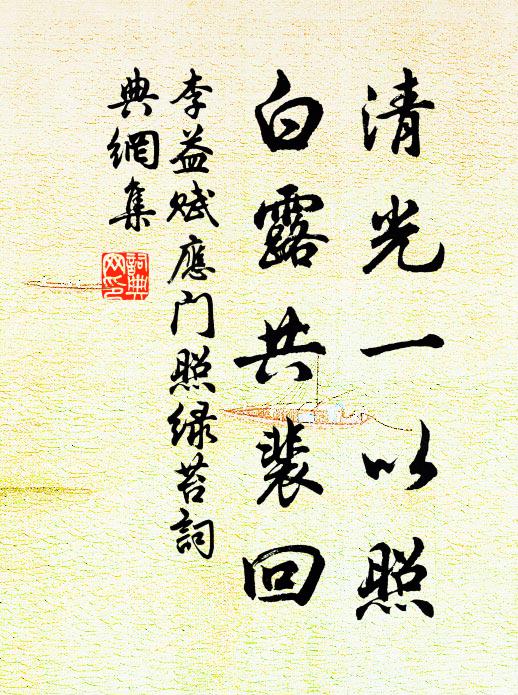 清光一以照
白露共裴回
李益赋應门照绿苔詞
典網集
詞典网印